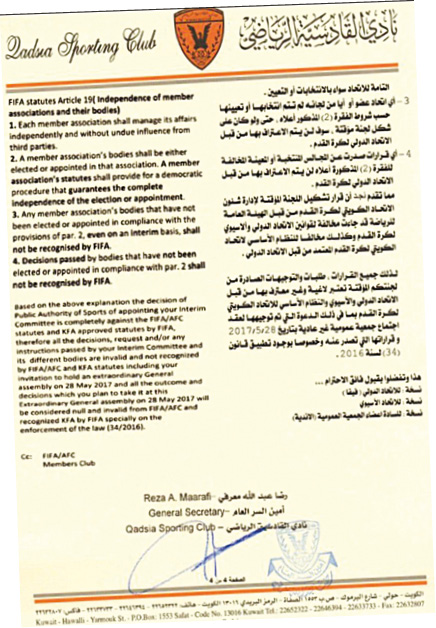 Qadsia Sporting Club
نادي القادسية الرياضي
FIFA statutes Article 19( Independence of member
associations and their bodies)
1. Each member association shall manage its affairs
independently and without undue influence from
third parties.
2. A member association's bodies shall be either
elected or appointed in that association. A member
association's statutes shall provide for a democratic
procedure that guarantees the complete
independence of the election or appointment.
3. Any member association's bodies that have not
been elected or appointed in compliance with the
provisions of par. 2, even on an interim basis, shall
not be recognised by FIFA.
4. Decisions passed by bodies that have not been
elected or appointed in compliance with par. 2 shall
not be recognised by FIFA.
Based on the above explanation the decision of
Public Authority of Sports of appointing your Interim
Committee is completely against the FIFA/AFC
statutes and KFA approved statutes by FIFA,
therefore all the decisions, request and/or any
instructions passed by your Interim Committee and
its different bodies are invalid and not recognized
by FIFA/AFC and KFA statutes including your
invitation to hold an extraordinary General
assembly on 28 May 2017 and all the outcome and
decisions which you plan to take it at this
Extraordinary General assembly on 28 May 2017 will
be considered null and invalid from FIFA/AFC and
recognized KFA by FIFA specially on the
enforcement of the law (34/2016).
Cc: FIFA/AFC
Members Club
التامة للاتحاد سواء بالانتخابات أو التعيين .
3 – أي اتحاد عضو أو أيا من لجانه لم تتم انتخابها أو تعيينها
حسب شروط الفقرة (2) المذكور أعلاه ، حتى ولو كان على
شكل لجنة مؤقتة ، سوف لن يتم الاعتراف بها من قبل
الاتحاد الدولي لكرة القدم .
4 – أي قرارات صدرت عن المجالس المنتخبة أو المعينة المخالفة
للفقرة (2) المذكور أعلاه لن يتم الاعتراف بها من قبل
الاتحاد الدولي لكرة القدم .
مما تقدم نجد أن قرار تشكيل اللجنة المؤقتة لإدارة شئون
الاتحاد الكويتي لكرة القدم من قبل الهيئة العامة
للرياضة قد جاءت مخالفة لقوانين الاتحاد الدولي والاسيوي
لكرة القدم وكذلك مخالفا للنظام الأساسي لاتحاد
الكويتي لكرة القدم المعتمد من قبل الاتحاد الدولي .
لذلك جميع القرارات ، طلبات والتوجيهات الصادرة من
لجنتكم المؤقتة تعتبر لاغية وغير معترف بها من قبل
الاتحاد الدولي والآسيوي والنظام الأساسي للاتحاد الكويتي
لكرة القدم بما في ذلك الدعوة التي تم توجيهها لعقد
اجتماع جمعية عمومية غير عادية بتاريخ 2017/5/28
و قراراتها التي تصدر عنه وخصوصا بوجود تطبيق قانون
(34) لسنة 2016 .
هذا وتفضلوا بقبول فائق الاحترام ...
نسخة : للاتحاد الدولي ( فيفا )
نسخة : للاتحاد الآسيوي
نسخة: للسادة أعضاء الجمعية العمومية (الأندية)
Reza A. Maarafi – رضا عبد الله معرفي
General Secretary – أمين السر العام
Qadsia Sporting Club – نادي القادسية الرياضي
صفحة 4 من 4
الكويت - حولي - شارع اليرموك - ص.ب ١٥٥٣ الصفاة - الرمز البريدي ١٣٠١٦ الكويت
Kuwait - Hawalli - Yarmouk St. - P.O.Box: 1553 Safat - Code No. 13016 Kuwait Tel: 22652322 - 22646394 - 22633733 - Fax: 22632807